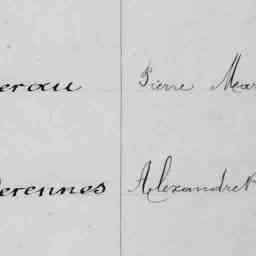 erou Pierre Mar
erennes Alexandre